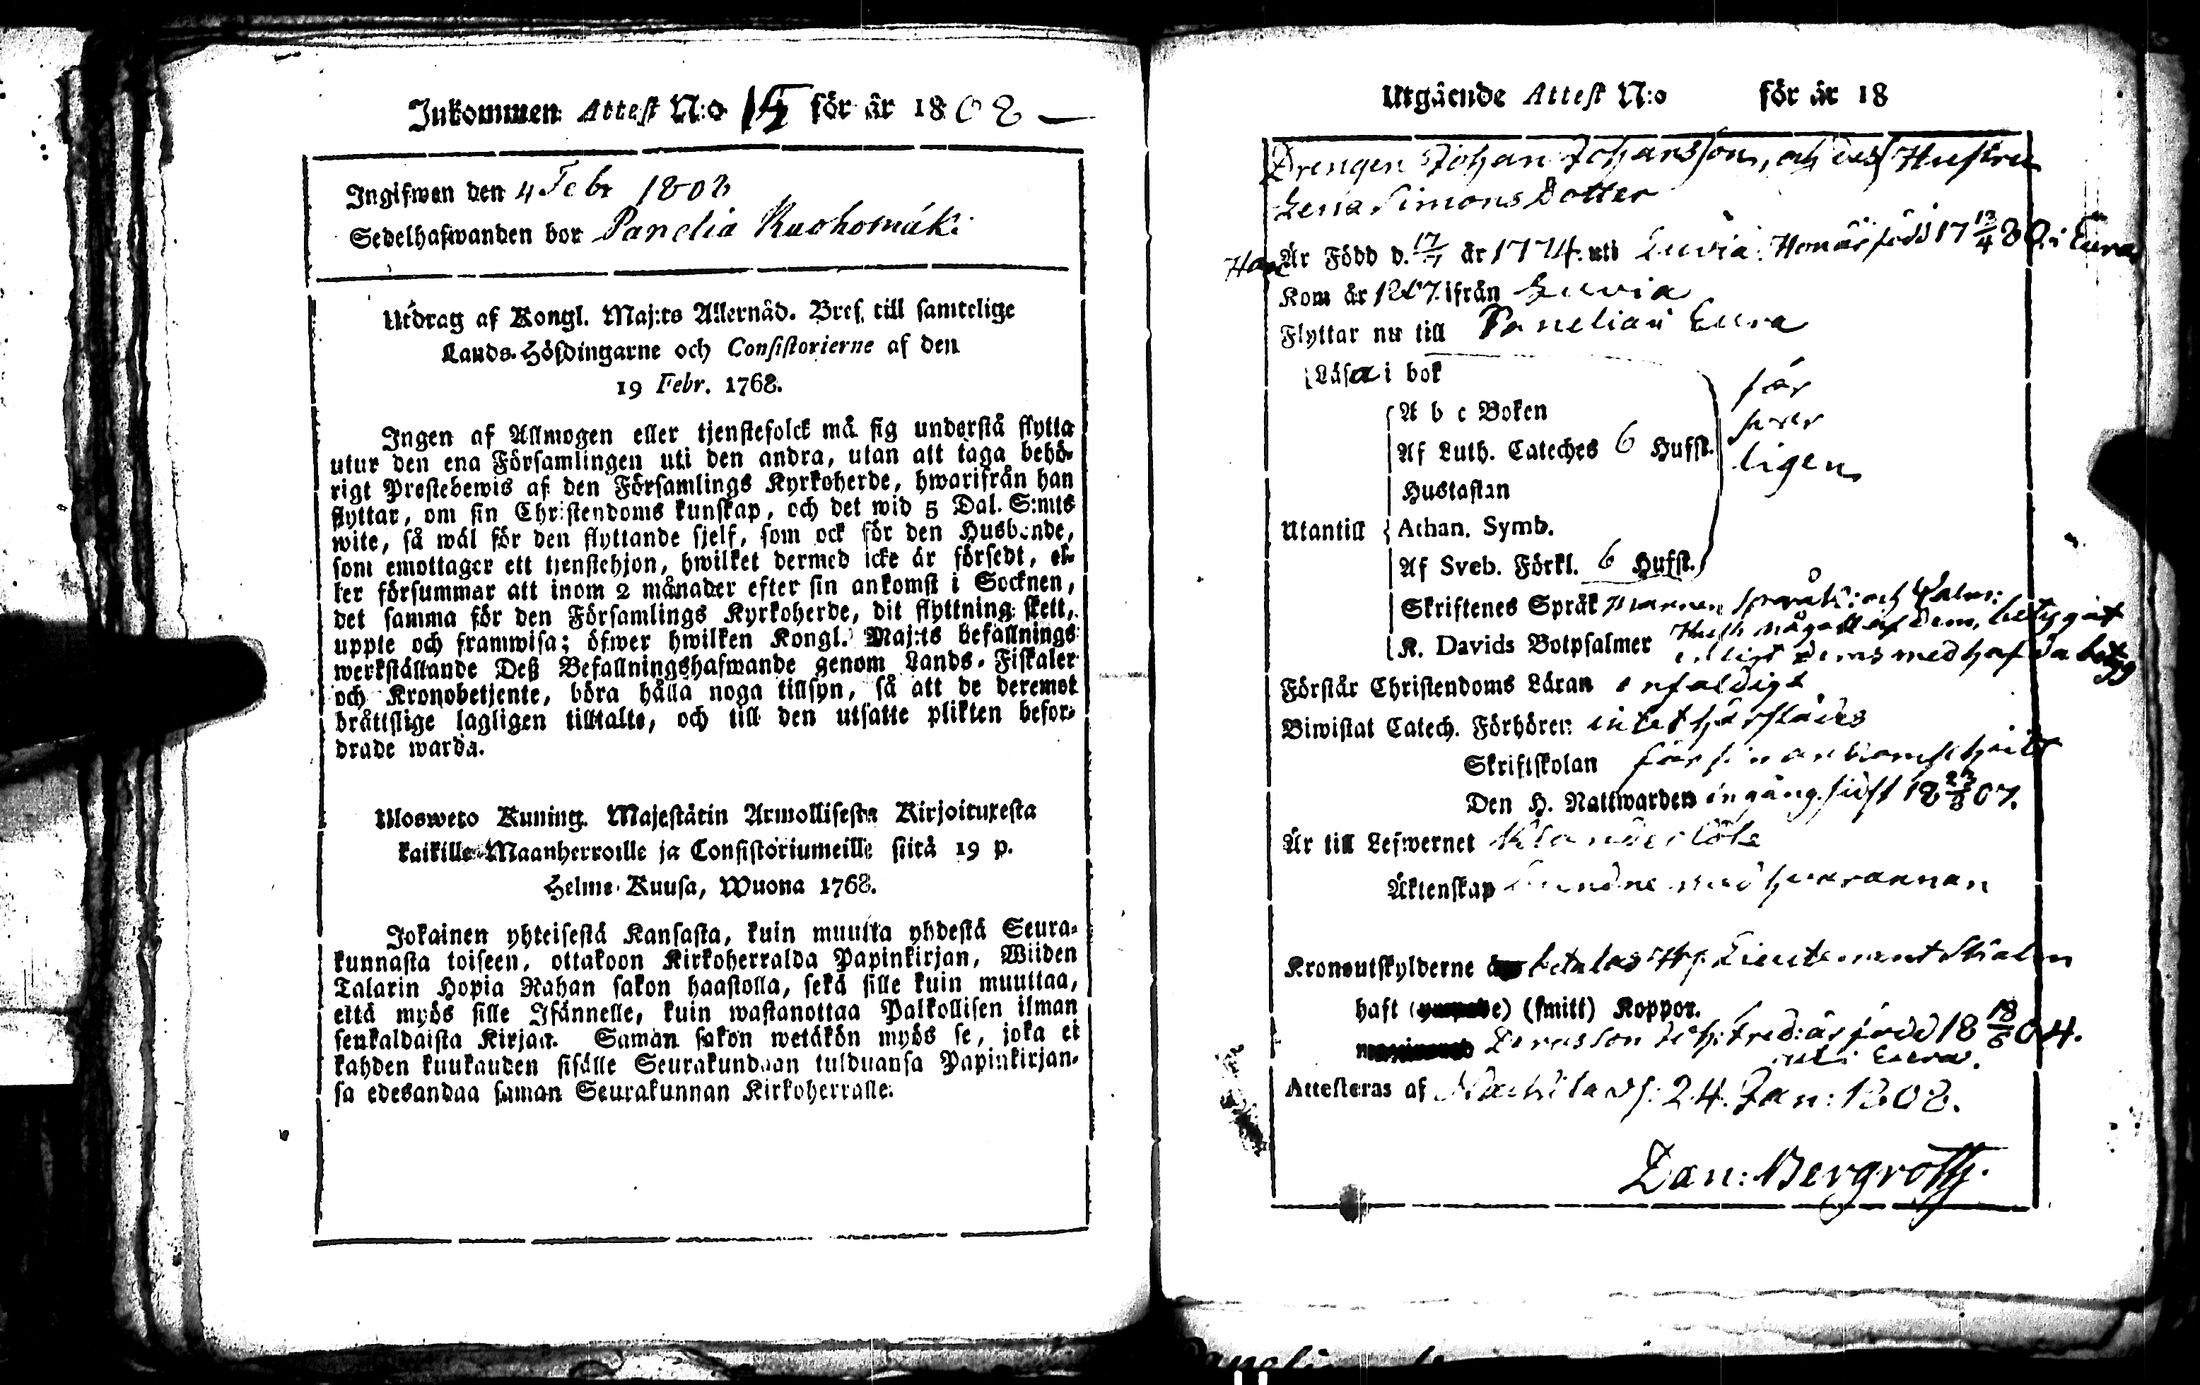 Inkommen Attest N:o 15 för år 1808
Ingifwen den 4 Febr 1808
Sedelhafwanden bor Panelia Ruohomäki
Utdrag af Kongl. Maj:ts Allernåd. Bref till samtelige
Lands-Höfdingarne och Consistorierne af den
19 Febr. 1768.
Ingen af Allmogen eller tjenstefolck må sig understå flytta
utur den ena Församlingen uti den andra, utan att taga behö-
rigt Prestebewis af den Församlings Kyrkoherde, hwarifrån han
flyttar, om sin Christendoms kunskap, och det wid 5 Dal. S:mts
wite, så wäl för den flyttande sjelf, som ock för den Husbonde,
som emottager ett tjenstehjon, hwilket dermed icke är försedt, el-
ler försummar att inom 2 månader efter sin ankomst i Socknen,
det samma för den Församlings Kyrkoherde, dit flyttning skett,
uppte och framwisa; öfwer hwilken Kongl. Maj:ts befallnings
werkställande Deß Befallningshafwande genom Lands-Fiskaler
och Kronobetjente, böra hålla noga tillsyn, så att de deremot
bråttslige lagligen tilltalte, och till den utsatte plikten befor-
drade warda.
Ulosweto Kuning. Majestätin Armollisesta Kirjoituxesta
kaikille Maanherroille ja Consistoriumeille siitä 19 p.
Helme-Kuusa, Wuona 1768.
Jokainen yhteisestä Kansasta, kuin muutta yhdestä Seura-
kunnasta toiseen, ottakoon Kirkoherralda Papinkirjan, Wiiden
Talarin Hopia Rahan sakon haastolla, sekä sille kuin muuttaa,
että myös sille Isännelle, kuin wastanottaa Palkollisen ilman
senkaldaista Kirjaa. Saman sakon wetäkön myös se, joka ei
kahden kuukauden sisälle Seurakundaan tulduansa Papinkirjan-
sa edesandaa saman Seurakunnan Kirkoherralle.
Utgående Attest N:o för år 18
Drengen Johan Johansson, och dess Hustru
Lena Simons Dotter
Han Är Född d. 17/ år 1774 uti Luvia. Hon är född 17 12/4 80 i Eura
Kom år 1807 ifrån Luvia
Flyttar nu till Panelia i Eura
Läsa i bok
A b c Boken
Af Luth. Cateches 6 Hufst.
Hustaflan
Utantill Athan. Symb.
Af Sveb. Förkl. 6 Hufst.
för
swar
ligen
Skriftenes Språk mannen språk: och Psalm:
K. Davids Botpsalmer Hust. något af dem, betyget
enligt deras medhafda betyg
Förstår Christendoms Läran enfaldigt
Biwistat Catech. Förhören intet härstädes
Skriftskolan för sin ankomst hit
Den H. Nattwarden en gång sidst 18 27/8 07.
Är till Lefwernet Klanderlöse
Äktenskap med hwarannan
Kronoutskylderne betalas Hr Lieutenant Stralen
haft (smitt) Koppor.
son Joh: Fred: är född 18 18/6 04.
uti Eura.
Attesteras af Nackila d. 24. Jan: 1808.
Dan: Bergroth.